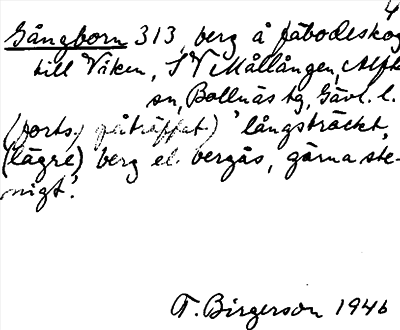 4
Gångborn 313, berg å fäbodeskog
till Viken, SV Mållången, Alfta
sn, Bollnäs tg, Gävl. l.
(forts, påträffat) 'långsträckt,
(lägre) berg el. bergås, gärna ste-
nigt'.
T. Birgerson 1946